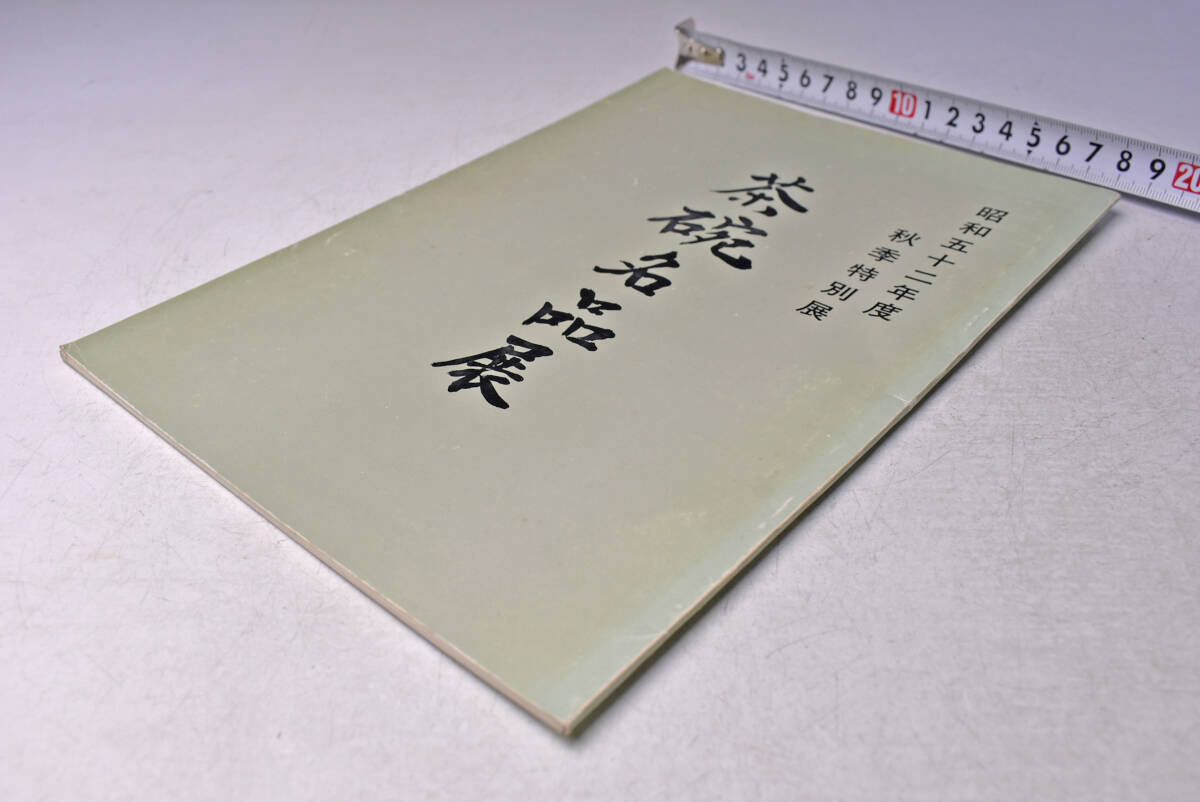 昭和五十二年度
秋季特別展
茶碗名品展
3 4 5 6 7 8 9 10 1 2 3 4 5 6 7 8 9 20